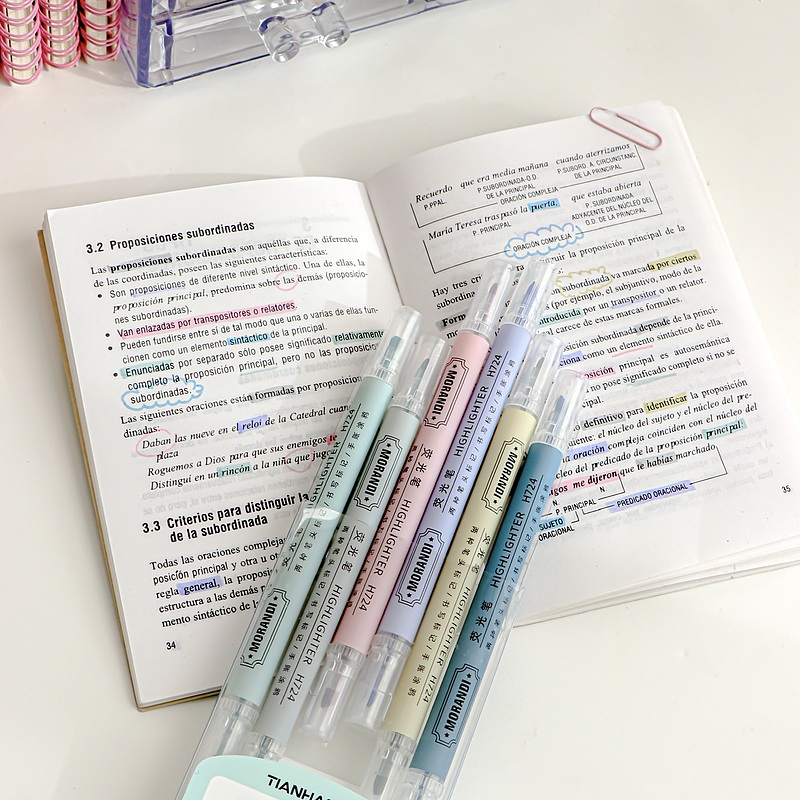 3.2 Proposiciones subordinadas
Las proposiciones subordinadas son aquéllas que, a diferencia
de las coordinadas, poseen las siguientes características:
• Son proposiciones de diferente nivel sintáctico. Una de ellas, la
proposición principal, predomina sobre las demás (proposicio-
nes subordinadas).
• Van enlazadas por transpositores o relatores.
• Pueden fundirse entre sí de tal modo que una o varias de ellas fun-
cionen como un elemento sintáctico de la principal.
• Enunciadas por separado sólo posee significado relativamente
completo la proposición principal, pero no las proposicio
subordinadas.
Las siguientes oraciones están formadas por proposicion
dinadas:
Daban las nueve en el reloj de la Catedral cuan
plaza
Roguemos a Dios para que sus enemigos
Distinguí en un rincón a la niña que jug
3.3 Criterios para distinguir la
de la subordinada
Todas las oraciones complejas
posición principal y otra u ot
regla general, la proposi
estructura a las demás p
mento sintáctico de l
34
Recuerdo que era media mañana cuando aterrizamos
P.PPAL. P.SUBORDINADA-O.D. P.SUBORD. A. CIRCUNSTANC
DE LA PRINCIPAL DE LA PRINCIPAL
ORACIÓN COMPLEJA
María Teresa traspasó la puerta, que estaba abierta
P. PRINCIPAL P. SUBORDINADA
ADYACENTE DEL NÚCLEO DEL
O.D. DE LA PRINCIPAL
ORACIÓN COMPLEJA
guir la proposición principal de la
Hay tres cri
subordinada va marcada por ciertos
subordina
(por ejemplo, el subjuntivo, modo de la
Form
introducida por un transpositor o un relator.
al carece de estas marcas formales.
osición subordinada depende de la princi-
ciona como un elemento sintáctico de ella.
posición principal es autosemántica
no pose significado completo si no se
definitivo para identificar la proposición
uiente: el núcleo del sujeto y el núcleo del pre-
oración compleja coinciden con el núcleo del
cleo del predicado de la proposición principal:
igos me dijeron que te habías marchado
N. N
P. PRINCIPAL
SUJETO PREDICADO ORACIONAL
ORACIONAL
35
MORANDI 荧光笔 HIGHLIGHTER H724
两种笔头标记/书写标记/手账涂鸦
MORANDI HIGHLIGHTER H724
荧光笔
两种笔头标记/书写标记/手账涂鸦
MORANDI 荧光笔 HIGHLIGHTER H724
MORANDI 荧光笔 HIGHLIGHTER H724
MORANDI 荧光笔 HIGHLIGHTER H724
两种笔头标记/书写标记/手账涂鸦
MORANDI 荧光笔 HIGHLIGHTER H724
TIANHA